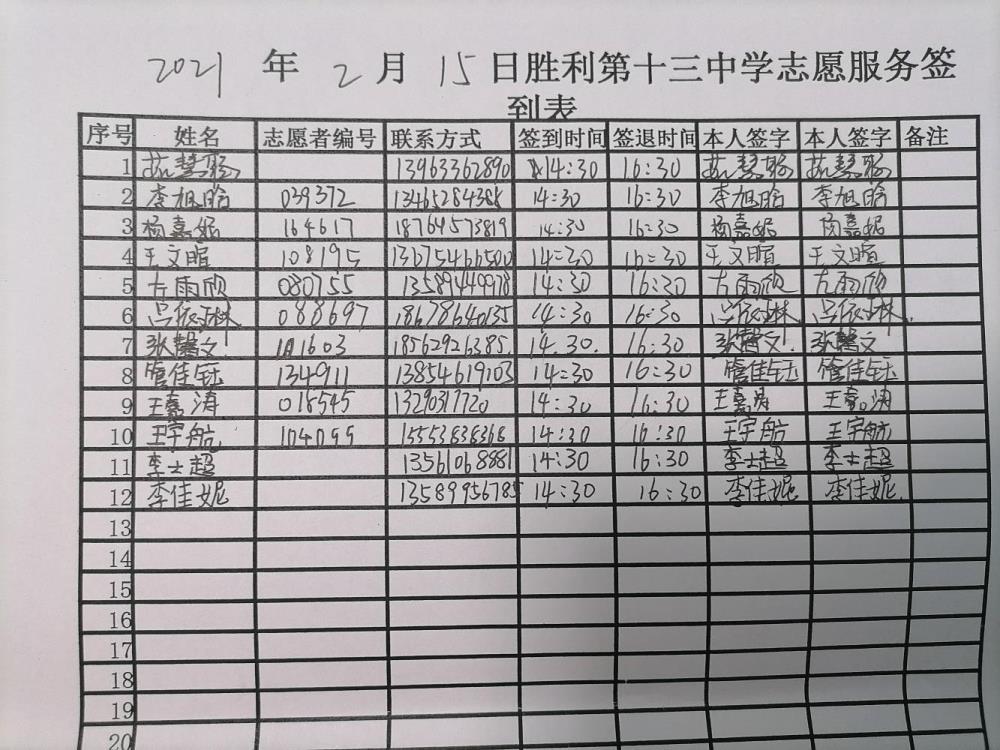 2021 年 2 月 15 日胜利第十三中学志愿服务签
到表
序号 姓名 志愿者编号 联系方式 签到时间 签退时间 本人签字 本人签字 备注
1 13963362890 14:30 16:30
2 李旭晗 039372 14:30 16:30 李旭晗 李旭晗
3 杨嘉妮 164617 18764573819 14:30 16:30 杨嘉妮 杨嘉妮
4 王文暄 108195 13675466500 14:30 16:30 王文暄 王文暄
5 左雨欣 080755 13589449978 14:30 16:30 左雨欣 左雨欣
6 吕依琳 088697 18678640135 14:30 16:30 吕依琳 吕依琳
7 张馨文 18562926385. 14.30. 16:30 张馨文 张馨文
8 管佳钰 134911 13854619103 14:30 16:30 管佳钰 管佳钰
9 王嘉涛 016545 13290317720 14:30 16:30 王嘉涛 王嘉涛
10 王宇航 104095 15553838368 14:30 16:30 王宇航 王宇航
11 李士超 13561068881 14:30 16:30 李士超 李士超
12 李佳妮 13589956785 14:30 16:30 李佳妮 李佳妮
13
14
15
16
17
18
19
20